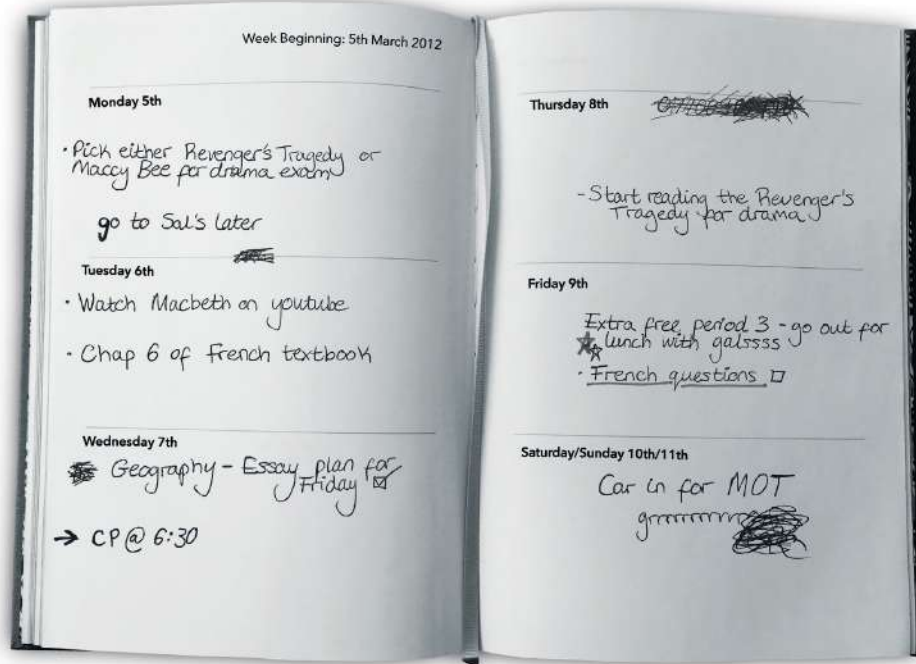 Week Beginning: 5th March 2012
Monday 5th
· Pick either Revenger's Tragedy or
Maccy Bee for drama exam
go to Sal's later
Tuesday 6th
· Watch Macbeth on youtube
· Chap 6 of French textbook
Wednesday 7th
Geography - Essay plan for
Friday ☑
→ CP @ 6:30
Thursday 8th
- Start reading the Revenger's
Tragedy for drama
Friday 9th
Extra free period 3 - go out for
lunch with galssss
· French questions ☐
Saturday/Sunday 10th/11th
Car in for MOT
grrrrrrrrr